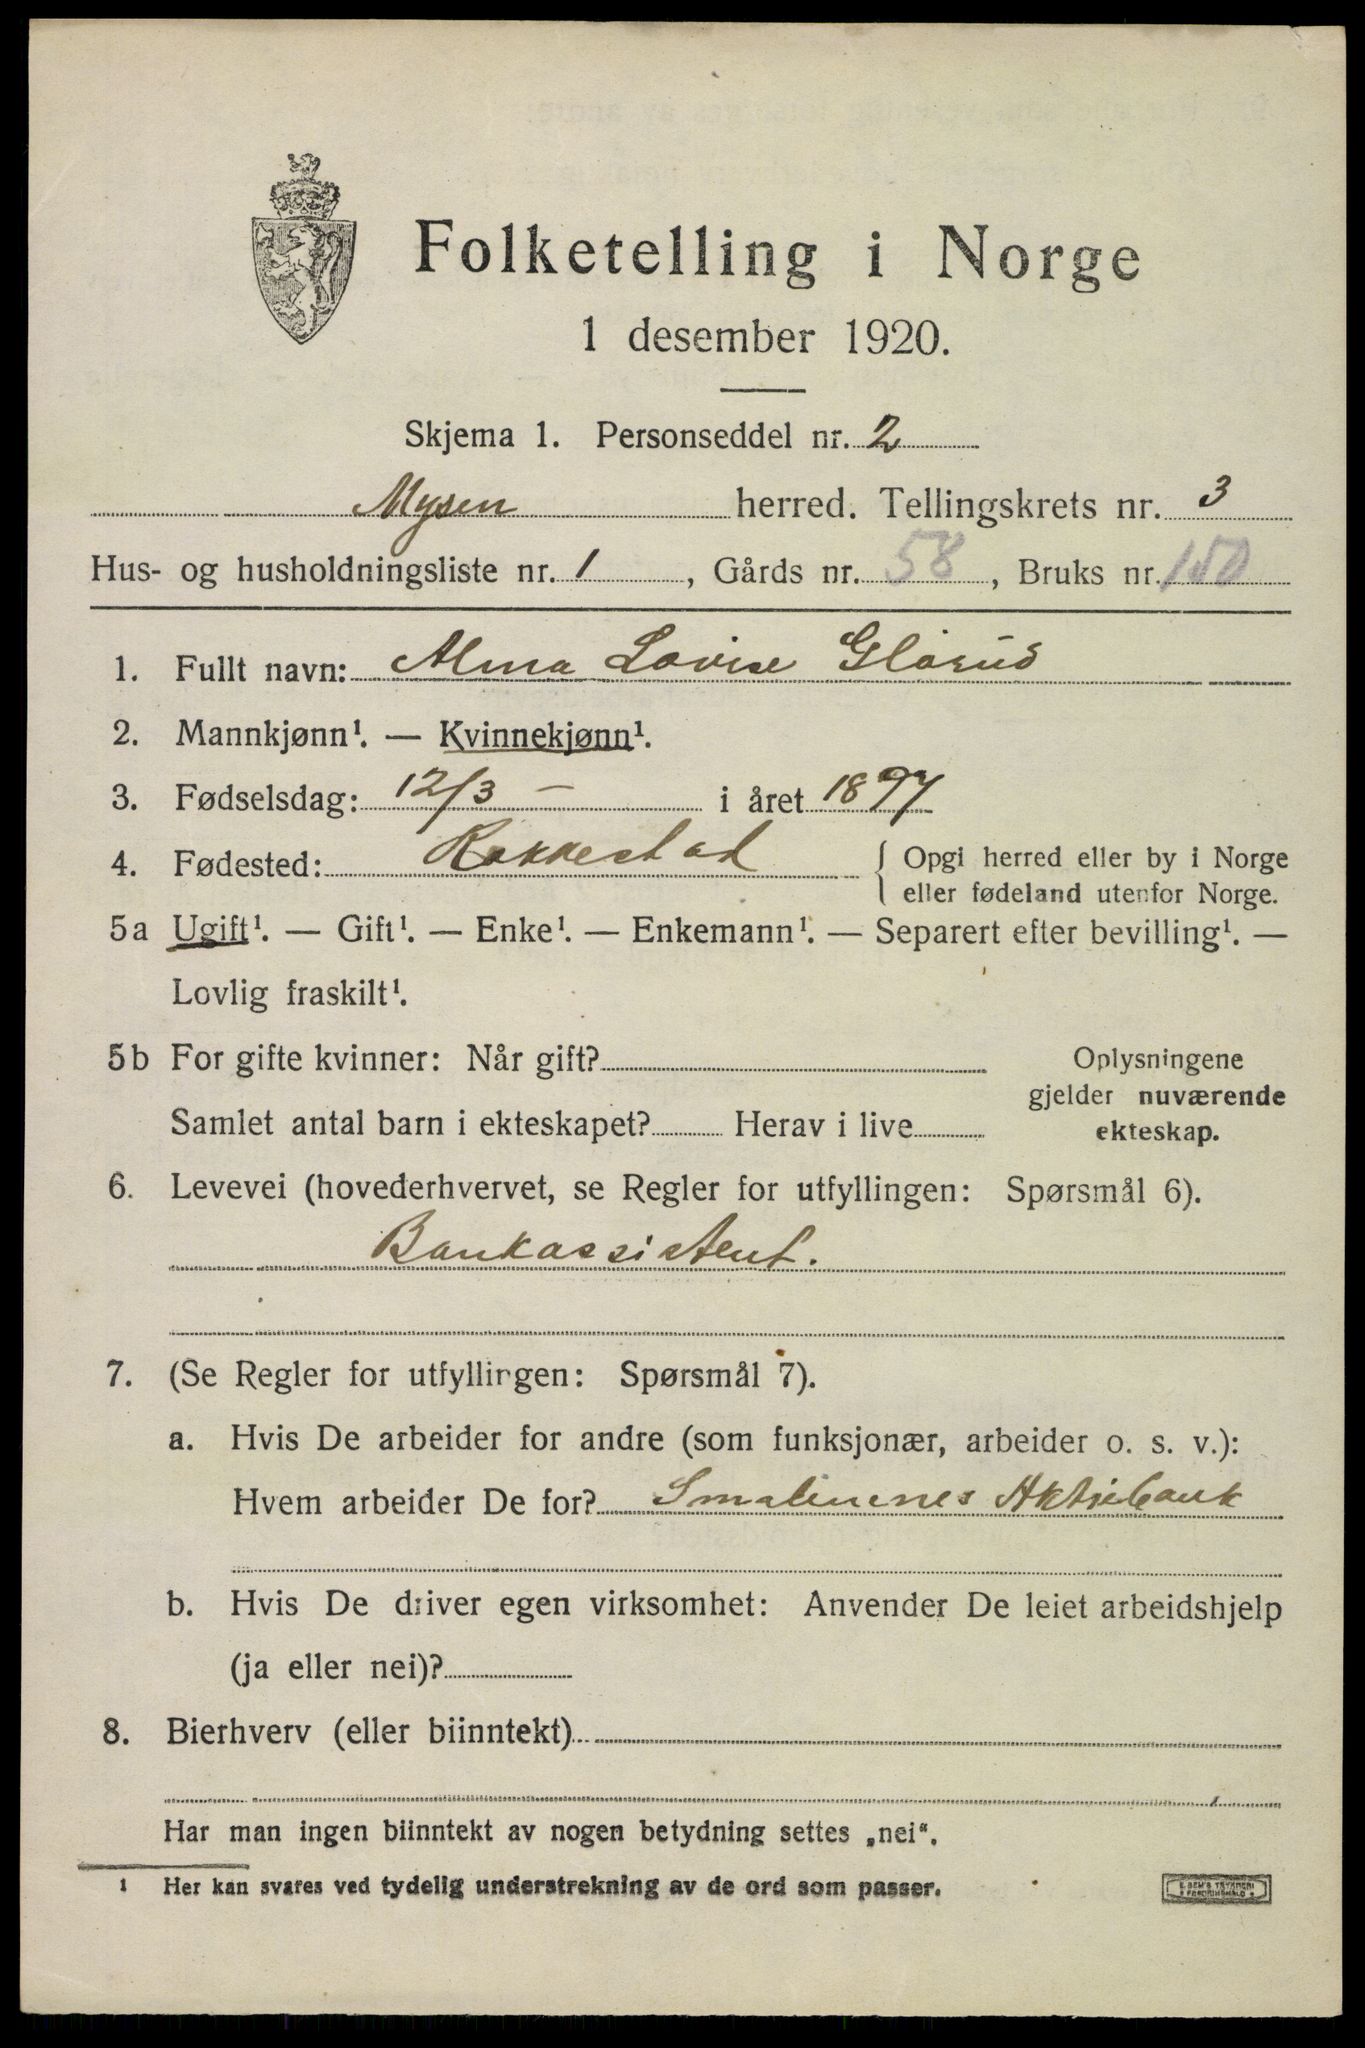 Folketelling i Norge
1 desember 1920.
Skjema 1. Personseddel nr. 2
Mysen herred. Tellingskrets nr. 3
Hus- og husholdningsliste nr. 1, Gårds nr. 58, Bruks nr. 150
1. Fullt navn: Alma Lovise Glørud
2. Mannkjønn¹. — Kvinnekjønn¹.
3. Fødselsdag: 12/3 — i året 1897
4. Fødested: Rakkestad { Opgi herred eller by i Norge
eller fødeland utenfor Norge.
5a Ugift¹. — Gift¹. — Enke¹. — Enkemann¹. — Separert efter bevilling¹. —
Lovlig fraskilt¹.
5b For gifte kvinner: Når gift?
Samlet antal barn i ekteskapet? Herav i live
Oplysningene
gjelder nuværende
ekteskap.
6. Levevei (hovederhvervet, se Regler for utfyllingen: Spørsmål 6).
Bankassistent.
7. (Se Regler for utfyllingen: Spørsmål 7).
a. Hvis De arbeider for andre (som funksjonær, arbeider o. s. v.):
Hvem arbeider De for? Smalenenes Aktiebank
b. Hvis De driver egen virksomhet: Anvender De leiet arbeidshjelp
(ja eller nei)?
8. Bierhverv (eller biinntekt)
Har man ingen biinntekt av nogen betydning settes „nei“.
1 Her kan svares ved tydelig understrekning av de ord som passer.